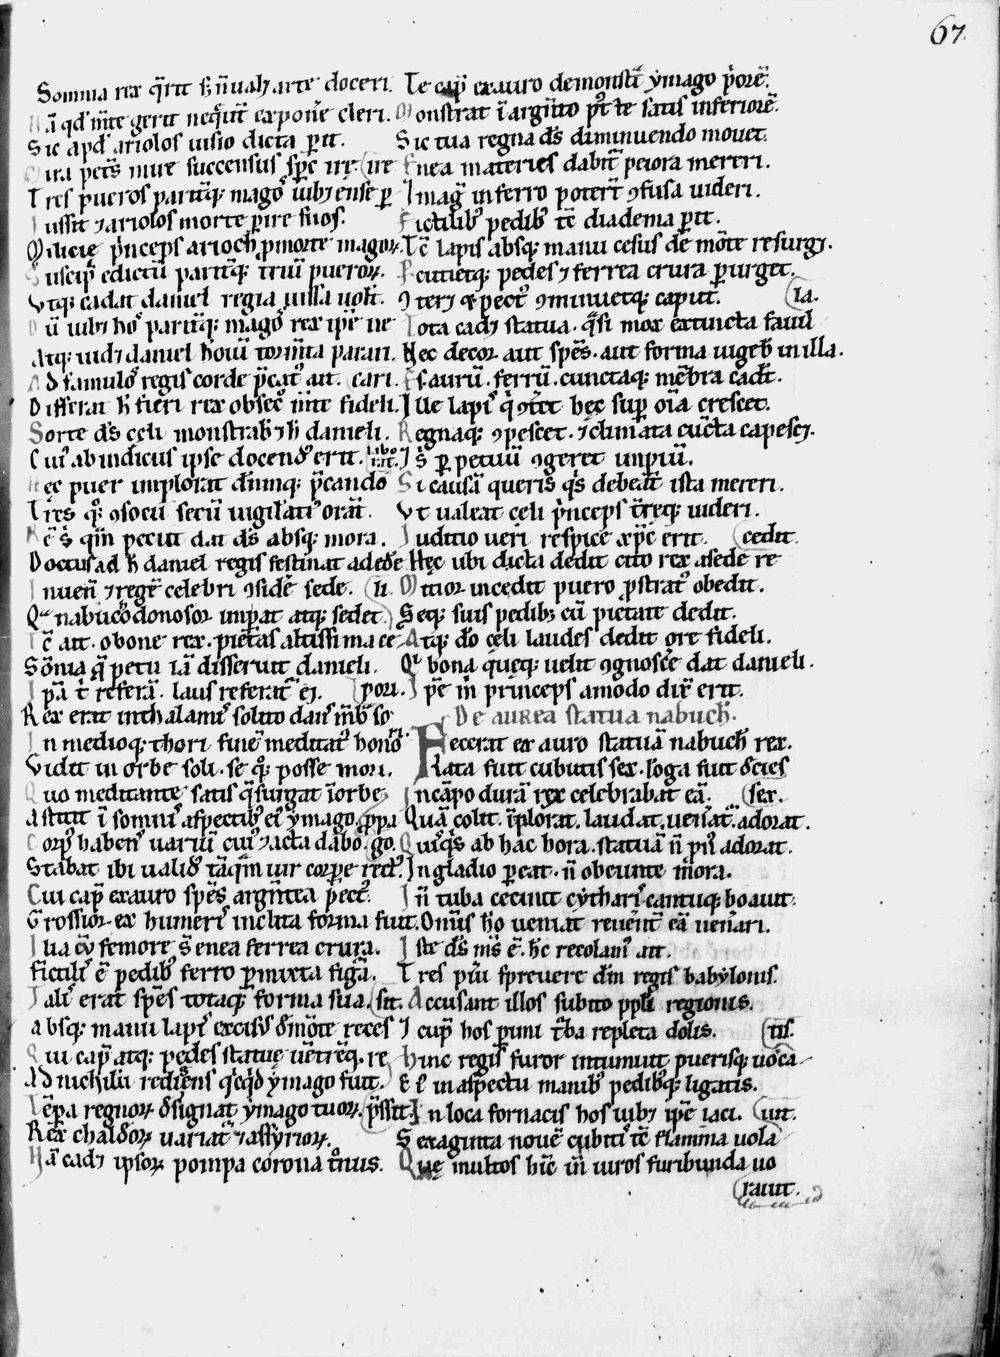 67.
Somnia rex q̄rit s; n̄ ualꝫ arte doceri.
Nā qđ m̄te gerit neq̄unt̄ exponere cleri.
Sic apđ ariolos uisio dicta perit.
succensus spc̄ irę.
Tres pueros parit̄q; magos iubꝫ ense ꝑ
Iussit ⁊ ariolos morte ꝑire suos.
Milicię p̄nceps arioch ꝓ morte magoꝝ.
Suscip̄ edictū parit̄q; triū pueroꝝ.
Vtq; cadat daniel regia iussa uolt̄.
Dū iubꝫ hos parit̄q; magos rex ip̄e ne
Atq; uidꝫ daniel hoiū torm̄ta parari. (cari.
Ad famulos regis corde p̄catꝰ ait.
Differat h̄ fieri rex obsec̄ m̄te fideli.
Sorte ds̄ cęli monstrabꝫ h̄ danieli.
Cuiꝰ ab indiciis ipse docendꝰ erit.
Hęc puer implorat dn̄mq; p̄cando
Tres q̊; ɔsocii secū uigilanti orāt.
ds̄ absq; mora.
Doctus ad h̄ daniel regis festinat adede
Inuen̄ ⁊ regē celebri ɔsidē sede. (h̄.
Qͥ nabucodonosor imp̄at atq; sedet.
Tc̄ ait. o bone rex. pietas altissima ce
Sōnia q̄ petii iā disseruit danieli.
Ip̄a t̄ referā. laus referat̄ ei. (pori.
Rex erat in thalamis solito
In medioq; thori finē meditatꝰ honor̄
Vidit in orbe soli. se q̊; posse mori.
Quo meditante satis q̄ surgat ī orbe
Astitit ī somnis aspectibꝰ ei ymago.
Corpꝰ habens uariū cuiꝰ ⁊ acta dabo.
Stabat ibi validꝰ tāq̄m uir corpore rectꝰ.
Cui cap̄ ex auro spēs arḡntea pectꝰ.
Grossior ex humeris inclita forma fuit.
femore s; enea ferrea crura.
Fictilis ē pedibꝰ ferro ꝑmixta figā.
Talis erat spēs totaq; forma sua. (sit.
Absq; manu lapis excisus đ mōte reces
Qui cap̄ atq; pedes statuę uētrēq. re
Ad nichilū rediḡens q̄cq̄đ ymago fuit.
Tēp̄a regnoꝝ đsignat ymago tuoꝝ. (p̄ssit.
Rex chaldeoꝝ uariat̄ ⁊ assyrioꝝ.
Nā cadꝫ ipsoꝝ pompa corona t̊nus.
Te cap̄ ex auro demonst̄t ymago p̄orē.
Monstrat ī argēto p̄t te satis inferiorē.
Sic tua regna ds̄ diminuendo mouet.
Enea materies dabit̄ peiora mereri.
Imaḡ in ferro potert̄ ɔfusa uideri.
Fictilibꝰ pedibꝰ tc̄ diadema perit.
Tc̄ lapis absq; manu cesus de mōte resurgꝫ.
Pcutietq; pedes ⁊ ferrea crura ꝑurget.
Ɔterꝫ & pectꝰ ɔminuetq; caput. (la.
Tota cadꝫ statua. q̄si mox extincta fauil
Nec decor. aut spēs. aut forma uigebit in illa.
Es. aurū. ferrū. cunctaq; mēbra cadēt.
Ille lapis q̄ ɔtēt hęc suꝑ oīa crescet.
Regnaq; ɔpescet. ⁊ climata cūcta capescꝫ.
Is ꝑpetuū ɔgeret impiū.
Si causā queris q̄s debeat̄ ista mereri.
Vt ualeat cęli p̄nceps t̄req; uideri.
Iuditio ueri respice xp̄c erit. (cedit.
Hęc ubi dicta dedit cito rex a sede re
Mitior incedit puero ꝓstratꝰ obedit.
Seq; suis pedibꝫ cū pietate dedit.
Atq; do cęli laudes dedit ore fideli.
Qͥ bona queq; uelit ɔgnoscē dat danieli.
Ip̄e m̄ princeps amodo dix̄ erit.
De aurea statua nabuch̄.
Fecerat ex auro statuā nabuch̄ rex.
Rata fuit cubitis sex. loga fuit đcies
In cāpo durā rex celebrabat eā. (sex.
Quā colit. īplorat. laudat. uenāt̄. adorat.
Quisq̄s ab hac hora. statuā n̄ priꝰ adorat.
In gladio ꝑeat. n̄ obeunte mora.
In̄ tuba cecinit cythari cantuq; boauit.
Om̄is ho ueniat reuēnt̄ eā uenari.
Iste ds̄ m̄s ē. hc̄ recolam̄ ait.
Tres pi̅i spreuere dm̄ regis babylonis.
Accusant illos subito pp̄li regionis.
I cup̄ hos puni t̄ba repleta dolis. (tis.
Hinc regis furor intumuit puerisq; uoca
Et in aspectu manibꝰ pedibꝰq; ligatis.
In loca fornacis hos iubꝫ ip̄e iaci. (uit.
Sexaginta nouē cubitis tc̄ flamma uola
Quę multos hīc īn uiros furibunda uo
(rauit.